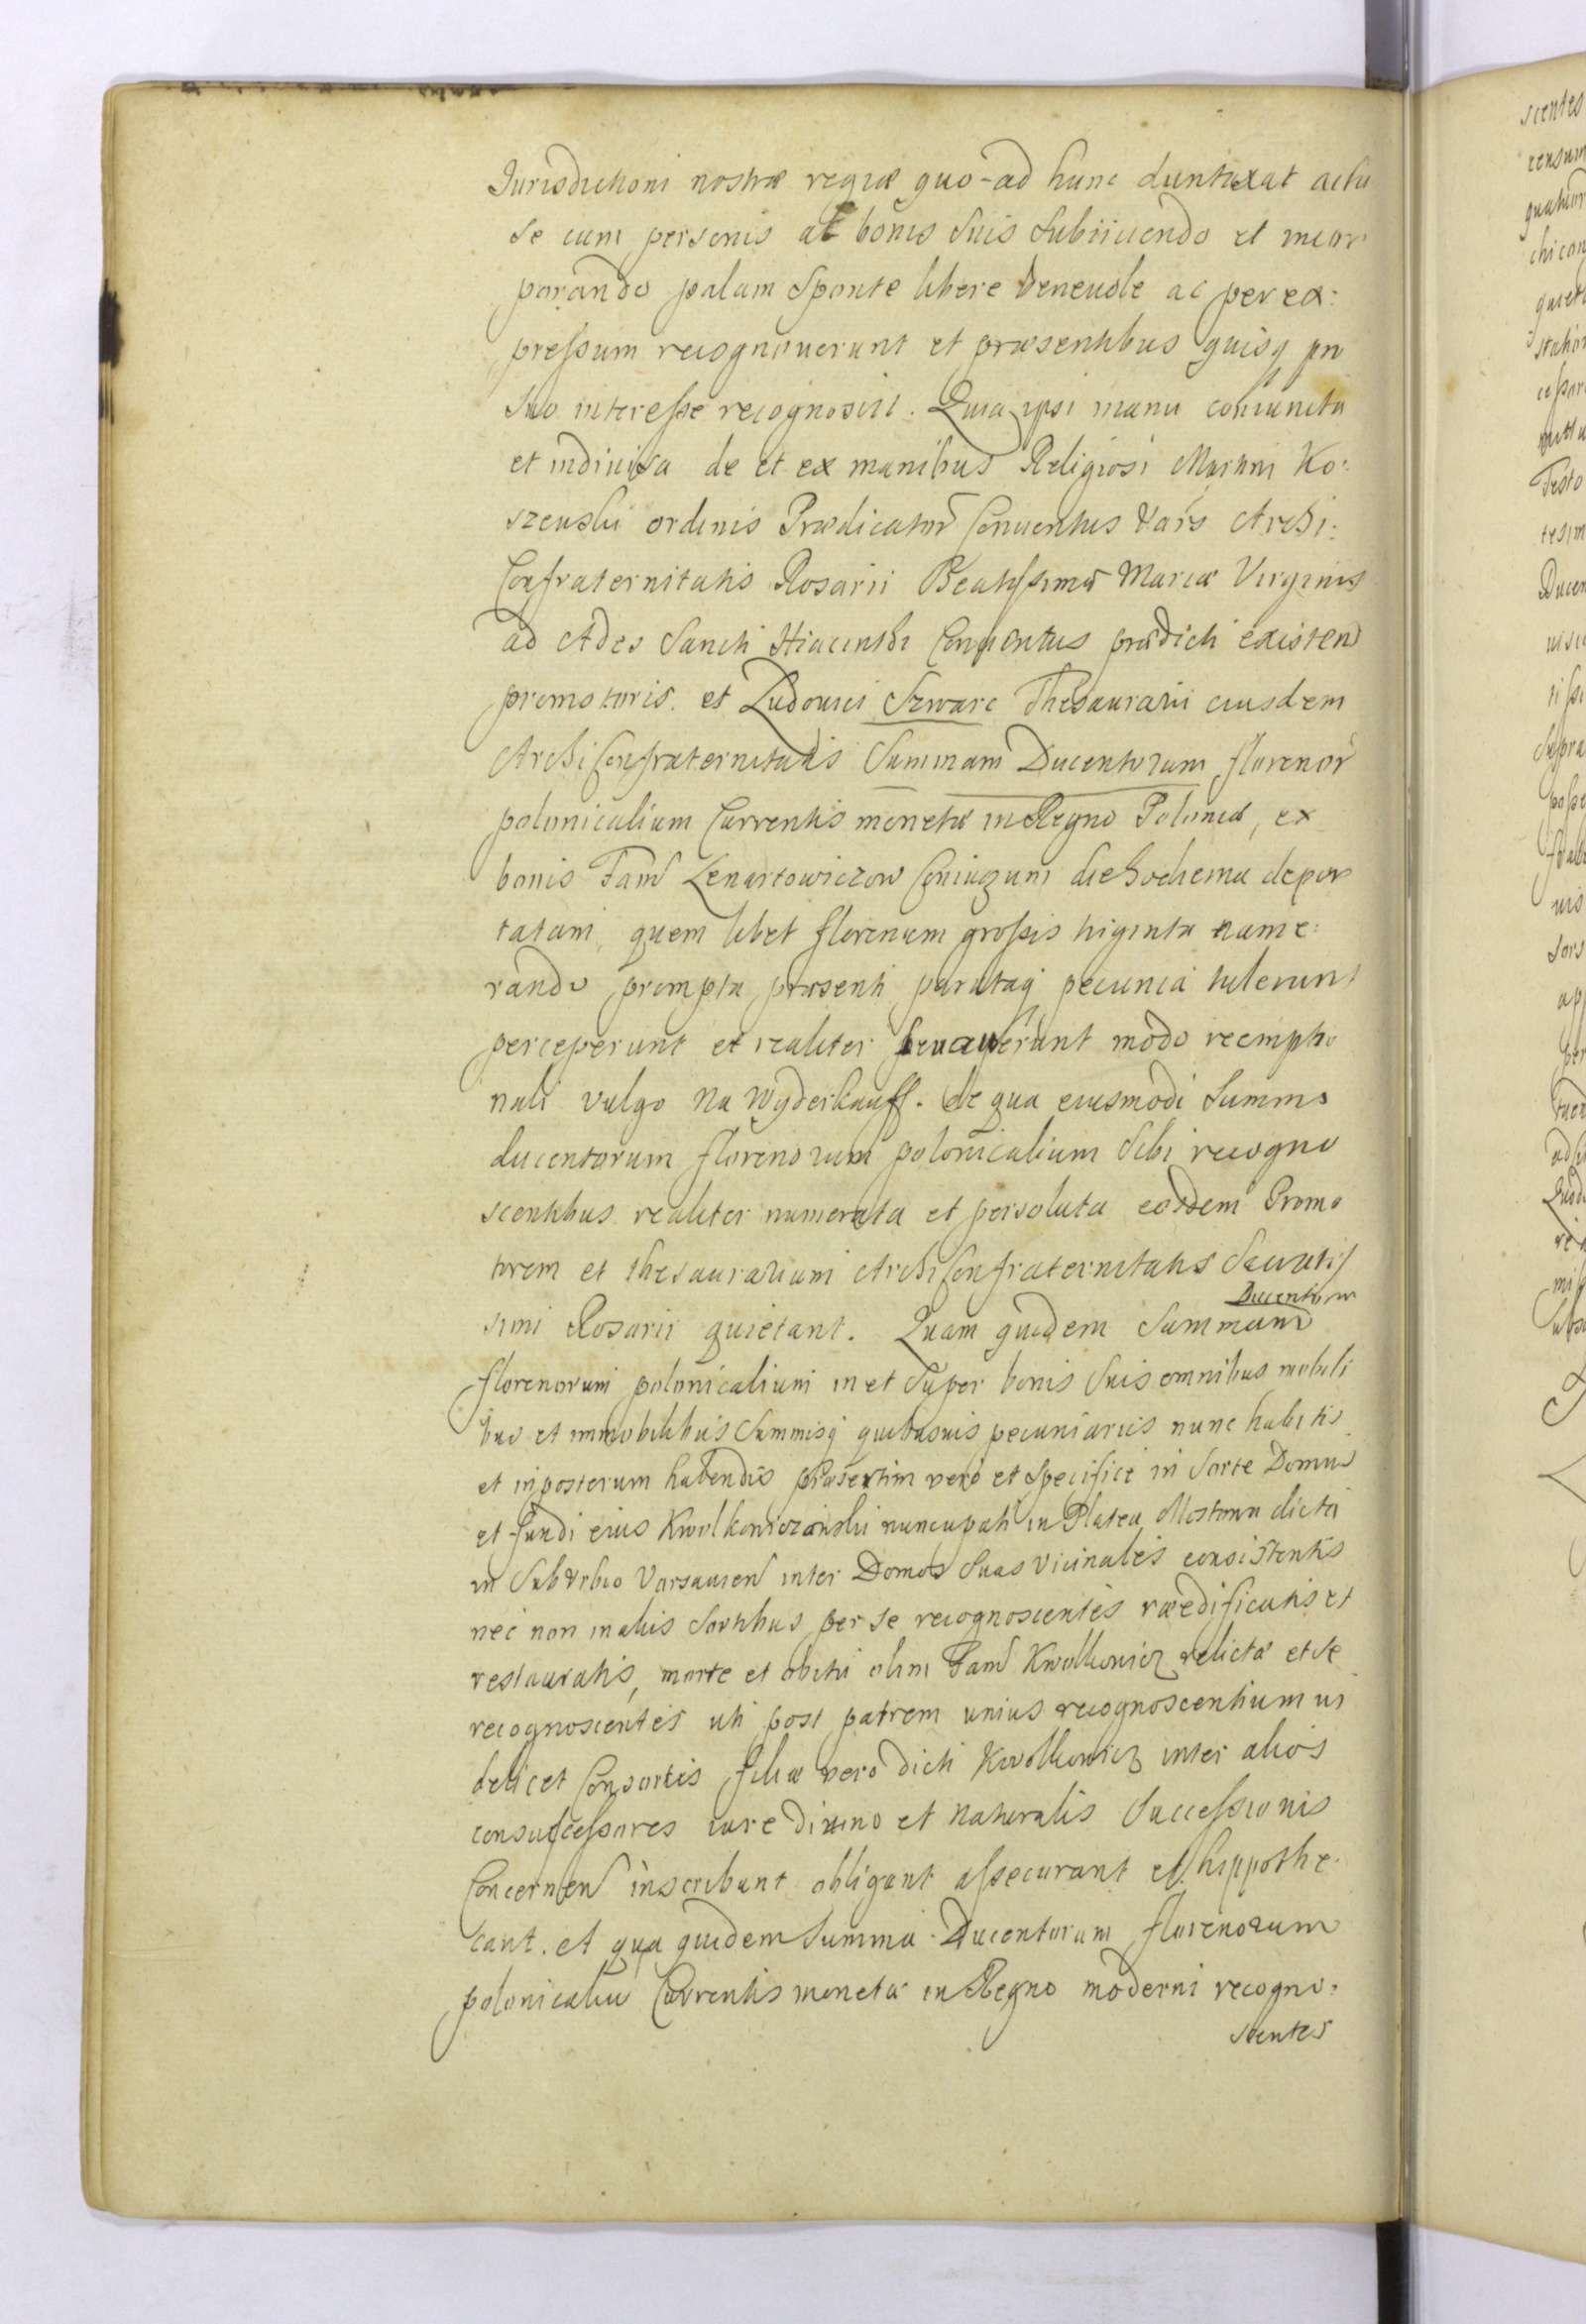 Jurisdictioni nostræ regiæ quo-ad hunc duntaxat actu
se cum personis ac bonis suis subiiciendo et incor
porando palam sponte libere beneuole ac per ex:
pressum recognouerunt et præsentibus quisq pro
suo interesse recognoscit. Quia ipsi manu coniuncta
et indiuisa de et ex manibus Religiosi Martini Ko:
szeuski ordinis Prædicator Conuentus Vars Archi:
Confraternitatis Rosarii Beatissimæ Mariæ Virginis
ad Ædes Sancti Hiacinthi Conuentus prædicti existen
promotoris. et Ludouici Szwarc Thesaurarii eiusdem
Archi Confraternitatis Summam Ducentorum florenor
polonicalium Currentis monetæ in Regno Poloniæ, ex
bonis Fam Lenartowiczow Coniugum die hodierna depor
tatam, quem libet florenum grossis triginta nume:
rando prompta præsenti parataq pecunia tulerunt
perceperunt et realiter leuauerunt modo reemptio
nali vulgo na Wyderkauff. de qua eiusmodi Summa
ducentorum florenorum polonicalium sibi recogno
scentibus realiter numerata et persoluta eosdem Promo
torem et thesaurarium Archi Confraternitatis Sacratis
simi Rosarii quietant. Quam quidem Summam
Ducentorum
florenorum polonicalium in et super bonis suis omnibus mobili
bus et immobilibus Summisq quibusuis pecuniariis nunc habitis
et inposterum habendis præsertim vero et specifice in sorte Domus
et fundi eius Kwolkowiczowski nuncupati in Platea Mostowa dicta
in Sub Vrbio Varsauien inter Domos suas vicinales consistentis
nec non in aliis sortibus per se recognoscentes reædificatis et
restauratis, morte et obitu olim Fam Kwolkowicz relicta et se
recognoscentes uti post patrem unius recognoscentium ui
delicet Consortis filiæ vero dicti Kwolkowicz inter alios
consuccessores iure diuino et naturalis Successionis
Concernen inscribunt obligant assecurant et hippothe:
cant. et qua quidem Summa Ducentorum florenorum
polonicaliu Currentis moneta in Regno moderni recogno:
scentes